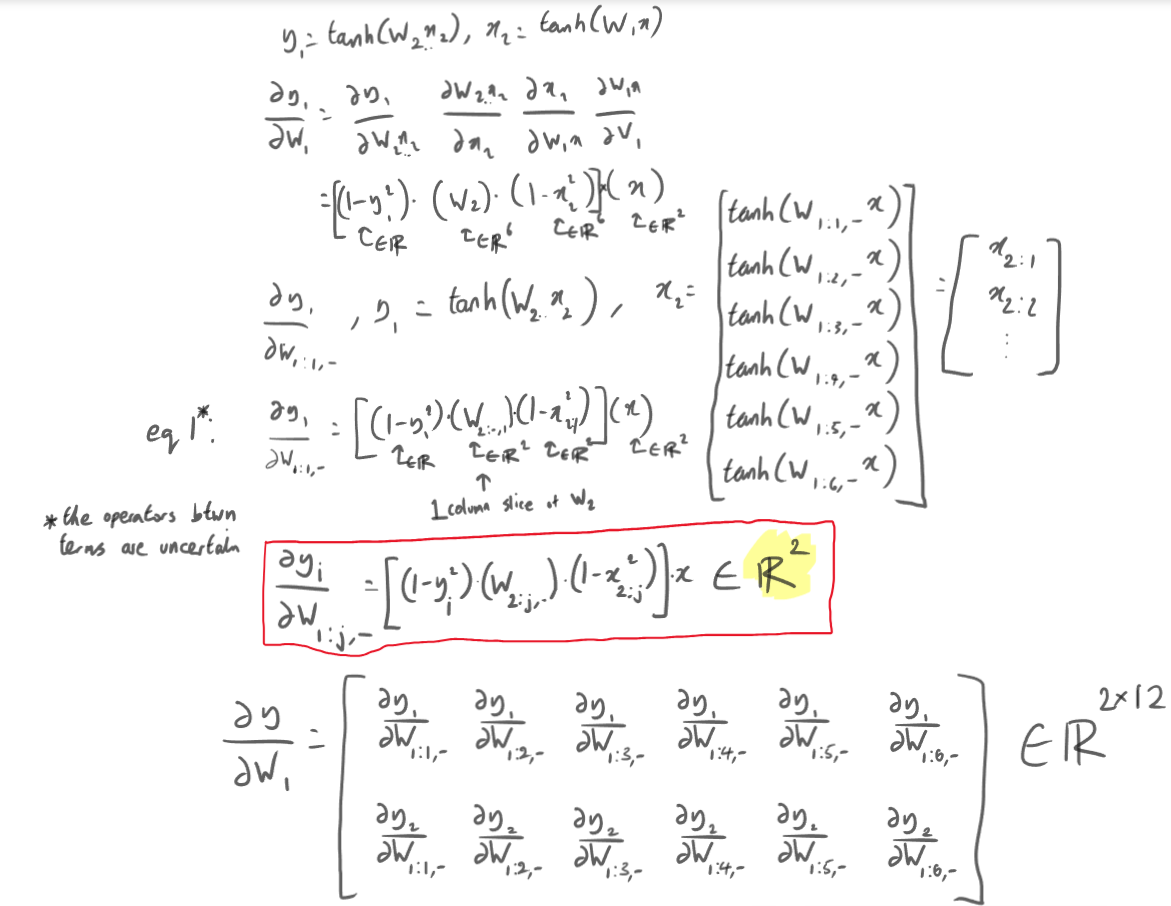 y₁ = tanh(W₂..x₂), x₂ = tanh(W₁x)
∂y₁/∂W₁ = ∂y₁/∂W₂..x₂ ∂W₂..x₂/∂x₂ ∂x₂/∂W₁x ∂W₁x/∂V₁
= [(1-y₁²)·(W₂)·(1-x₂²)]*(x)
↑∈ℝ ↑∈ℝ⁶ ↑∈ℝ⁶ ↑∈ℝ²
∂y₁/∂W₁:₁,₋ , y₁ = tanh(W₂..x₂), x₂ = [tanh(W₁:₁,₋x) tanh(W₁:₂,₋x) tanh(W₁:₃,₋x) tanh(W₁:₄,₋x) tanh(W₁:₅,₋x) tanh(W₁:₆,₋x)] = [x₂:₁ x₂:₂ ⋮]
eq 1*: ∂y₁/∂W₁:₁,₋ = [(1-y₁²)·(W₂:₋,₁)·(1-x₂:₁²)](x)
↑∈ℝ ↑∈ℝ² ↑∈ℝ² ↑∈ℝ²
↑
1 column slice of W₂
* the operators btwn
terms are uncertain
∂yᵢ/∂W₁:ⱼ,₋ = [(1-yᵢ²)·(W₂:ⱼ,₋)·(1-x₂:ⱼ²)]·x ∈ ℝ²
∂y/∂W₁ = [∂y₁/∂W₁:₁,₋ ∂y₁/∂W₁:₂,₋ ∂y₁/∂W₁:₃,₋ ∂y₁/∂W₁:₄,₋ ∂y₁/∂W₁:₅,₋ ∂y₁/∂W₁:₆,₋
∂y₂/∂W₁:₁,₋ ∂y₂/∂W₁:₂,₋ ∂y₂/∂W₁:₃,₋ ∂y₂/∂W₁:₄,₋ ∂y₂/∂W₁:₅,₋ ∂y₂/∂W₁:₆,₋] ∈ ℝ²ˣ¹²